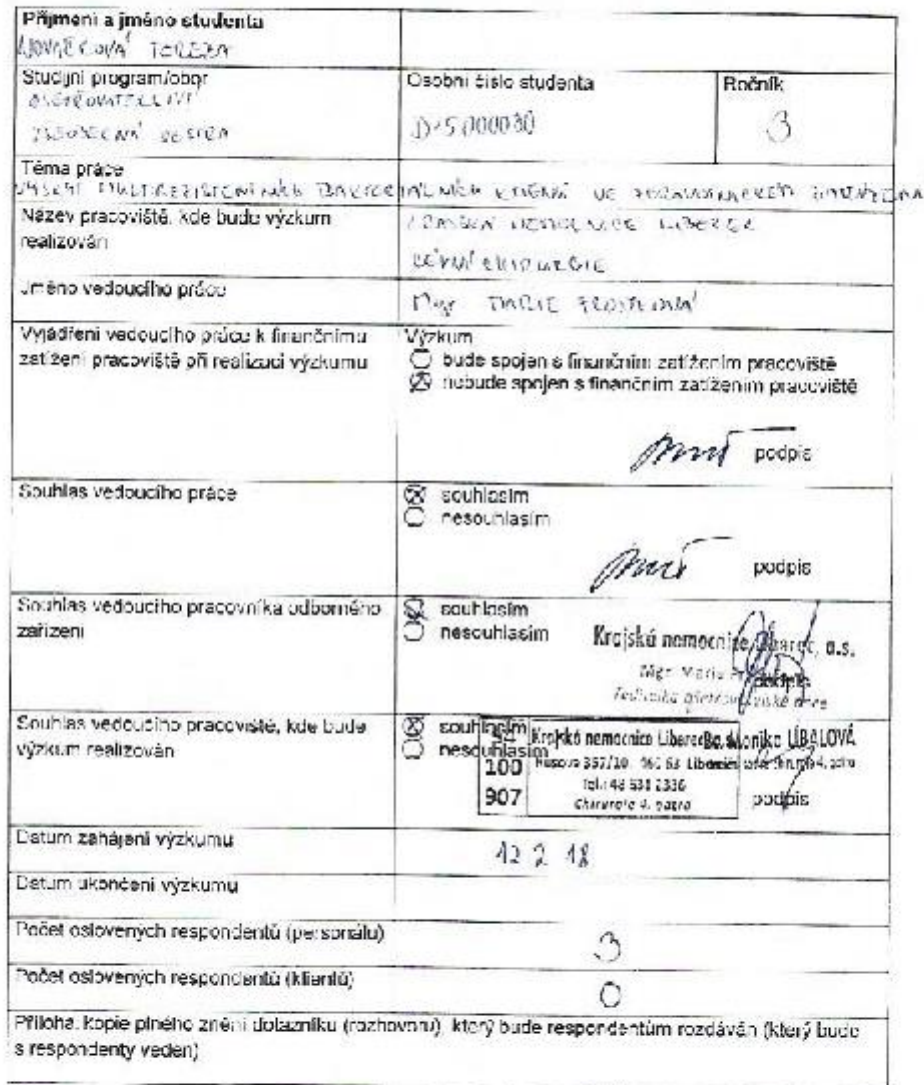 Příjmení a jméno studenta
NOVÁČKOVÁ TEREZA
Studijní program/obor
OŠETŘOVATELSTVÍ
VŠEOBECNÁ SESTRA
Osobní číslo studenta
D15000030
Ročník
3
Téma práce
VÝSKYT MULTIREZISTENTNÍCH BAKTERIÁLNÍCH KMENŮ VE ZDRAVOTNICKÉM ZAŘÍZENÍ
Název pracoviště, kde bude výzkum
realizován
KRAJSKÁ NEMOCNICE LIBEREC
CÉVNÍ CHIRURGIE
Jméno vedoucího práce
Mgr. MARIE
Vyjádření vedoucího práce k finančnímu
zatížení pracoviště při realizaci výzkumu
Výzkum
bude spojen s finančním zatížením pracoviště
nebude spojen s finančním zatížením pracoviště
podpis
Souhlas vedoucího práce
souhlasím
nesouhlasím
podpis
Souhlas vedoucího pracovníka odborného
zařízení
souhlasím
nesouhlasím
Krajská nemocnice Liberec, a.s.
Mgr. Marie
ředitelka ošetřovatelské péče
podpis
Souhlas vedoucího pracoviště, kde bude
výzkum realizován
souhlasím
nesouhlasím
54
100
907
Krajská nemocnice Liberec
Husova 357/10, 460 63 Liberec
Tel.: 48 531 2336
Chirurgie 4. patro
Bc. Monika LÍBALOVÁ
podpis
Datum zahájení výzkumu
12 2 18
Datum ukončení výzkumu
Počet oslovených respondentů (personálu)
3
Počet oslovených respondentů (klientů)
0
Příloha: kopie plného znění dotazníku (rozhovoru), který bude respondentům rozdáván (který bude
s respondenty veden)